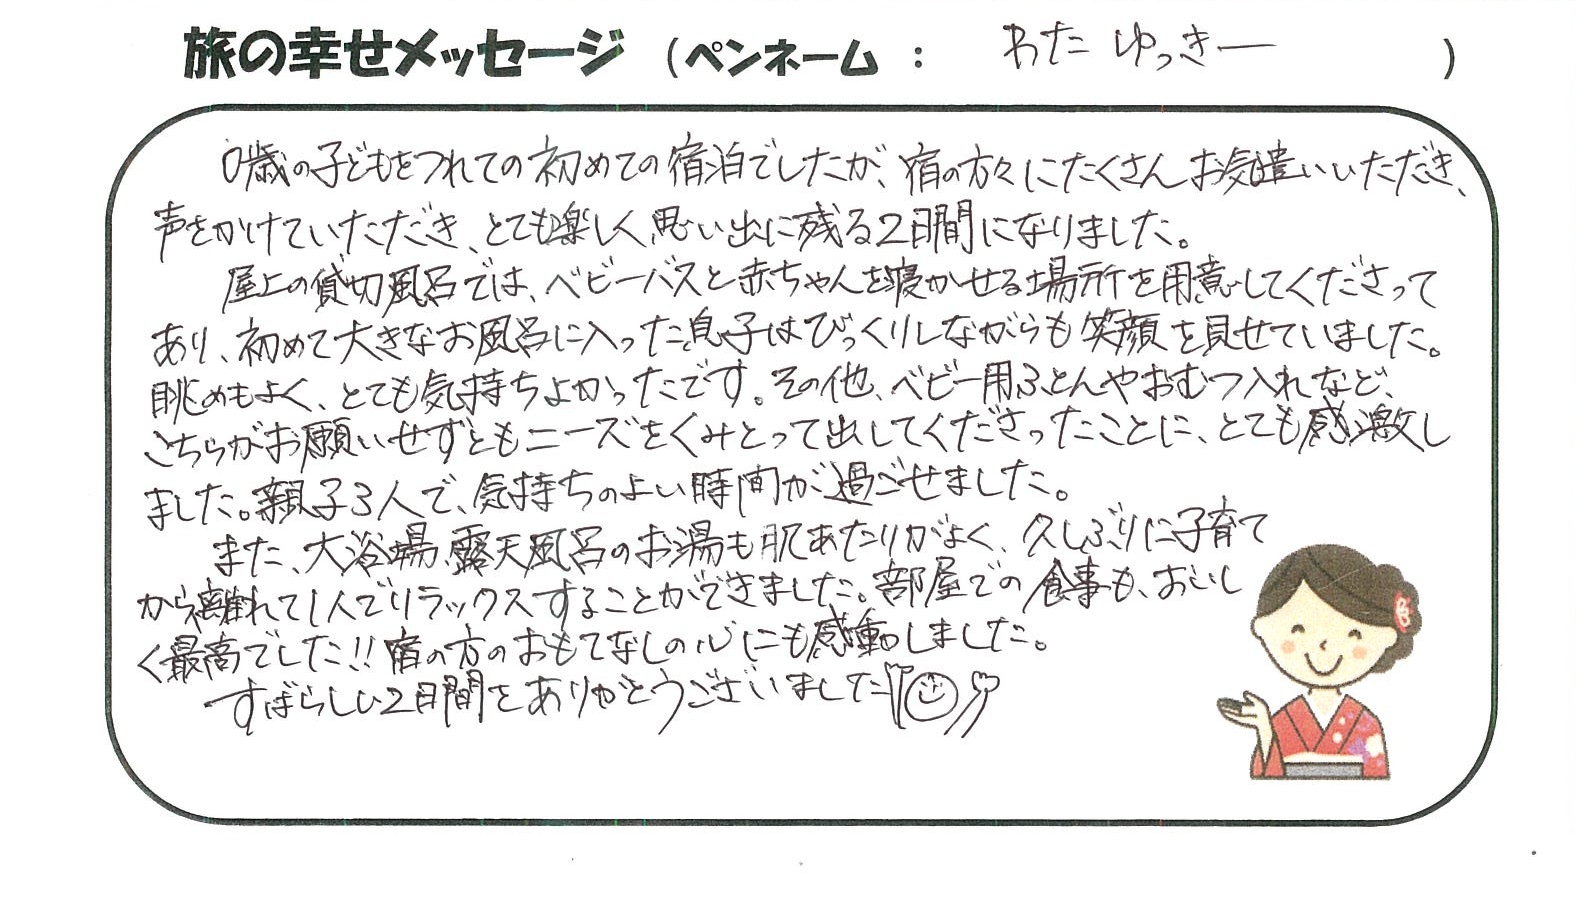 旅の幸せメッセージ (ペンネーム : わた ゆっきー )
0歳の子どもをつれての初めての宿泊でしたが、宿の方々にたくさんお気遣いいただき、
声をかけていただき、とても楽しく思い出に残る2日間になりました。
屋上の貸切風呂では、ベビーバスと赤ちゃんを寝かせる場所を用意してくださって
あり、初めて大きなお風呂に入った息子はびっくりしながらも笑顔を見せていました。
眺めもよく、とても気持ちよかったです。その他、ベビー用ふとんやおむつ入れなど、
こちらがお願いせずともニーズをくみとって出してくださったことに、とても感激し
ました。親子3人で、気持ちのよい時間が過ごせました。
また、大浴場、露天風呂のお湯も肌あたりがよく、久しぶりに子育て
から離れて1人でリラックスすることができました。部屋での食事も、おいし
く最高でした!!宿の方のおもてなしの心にも感動しました。
すばらしい2日間をありがとうございました